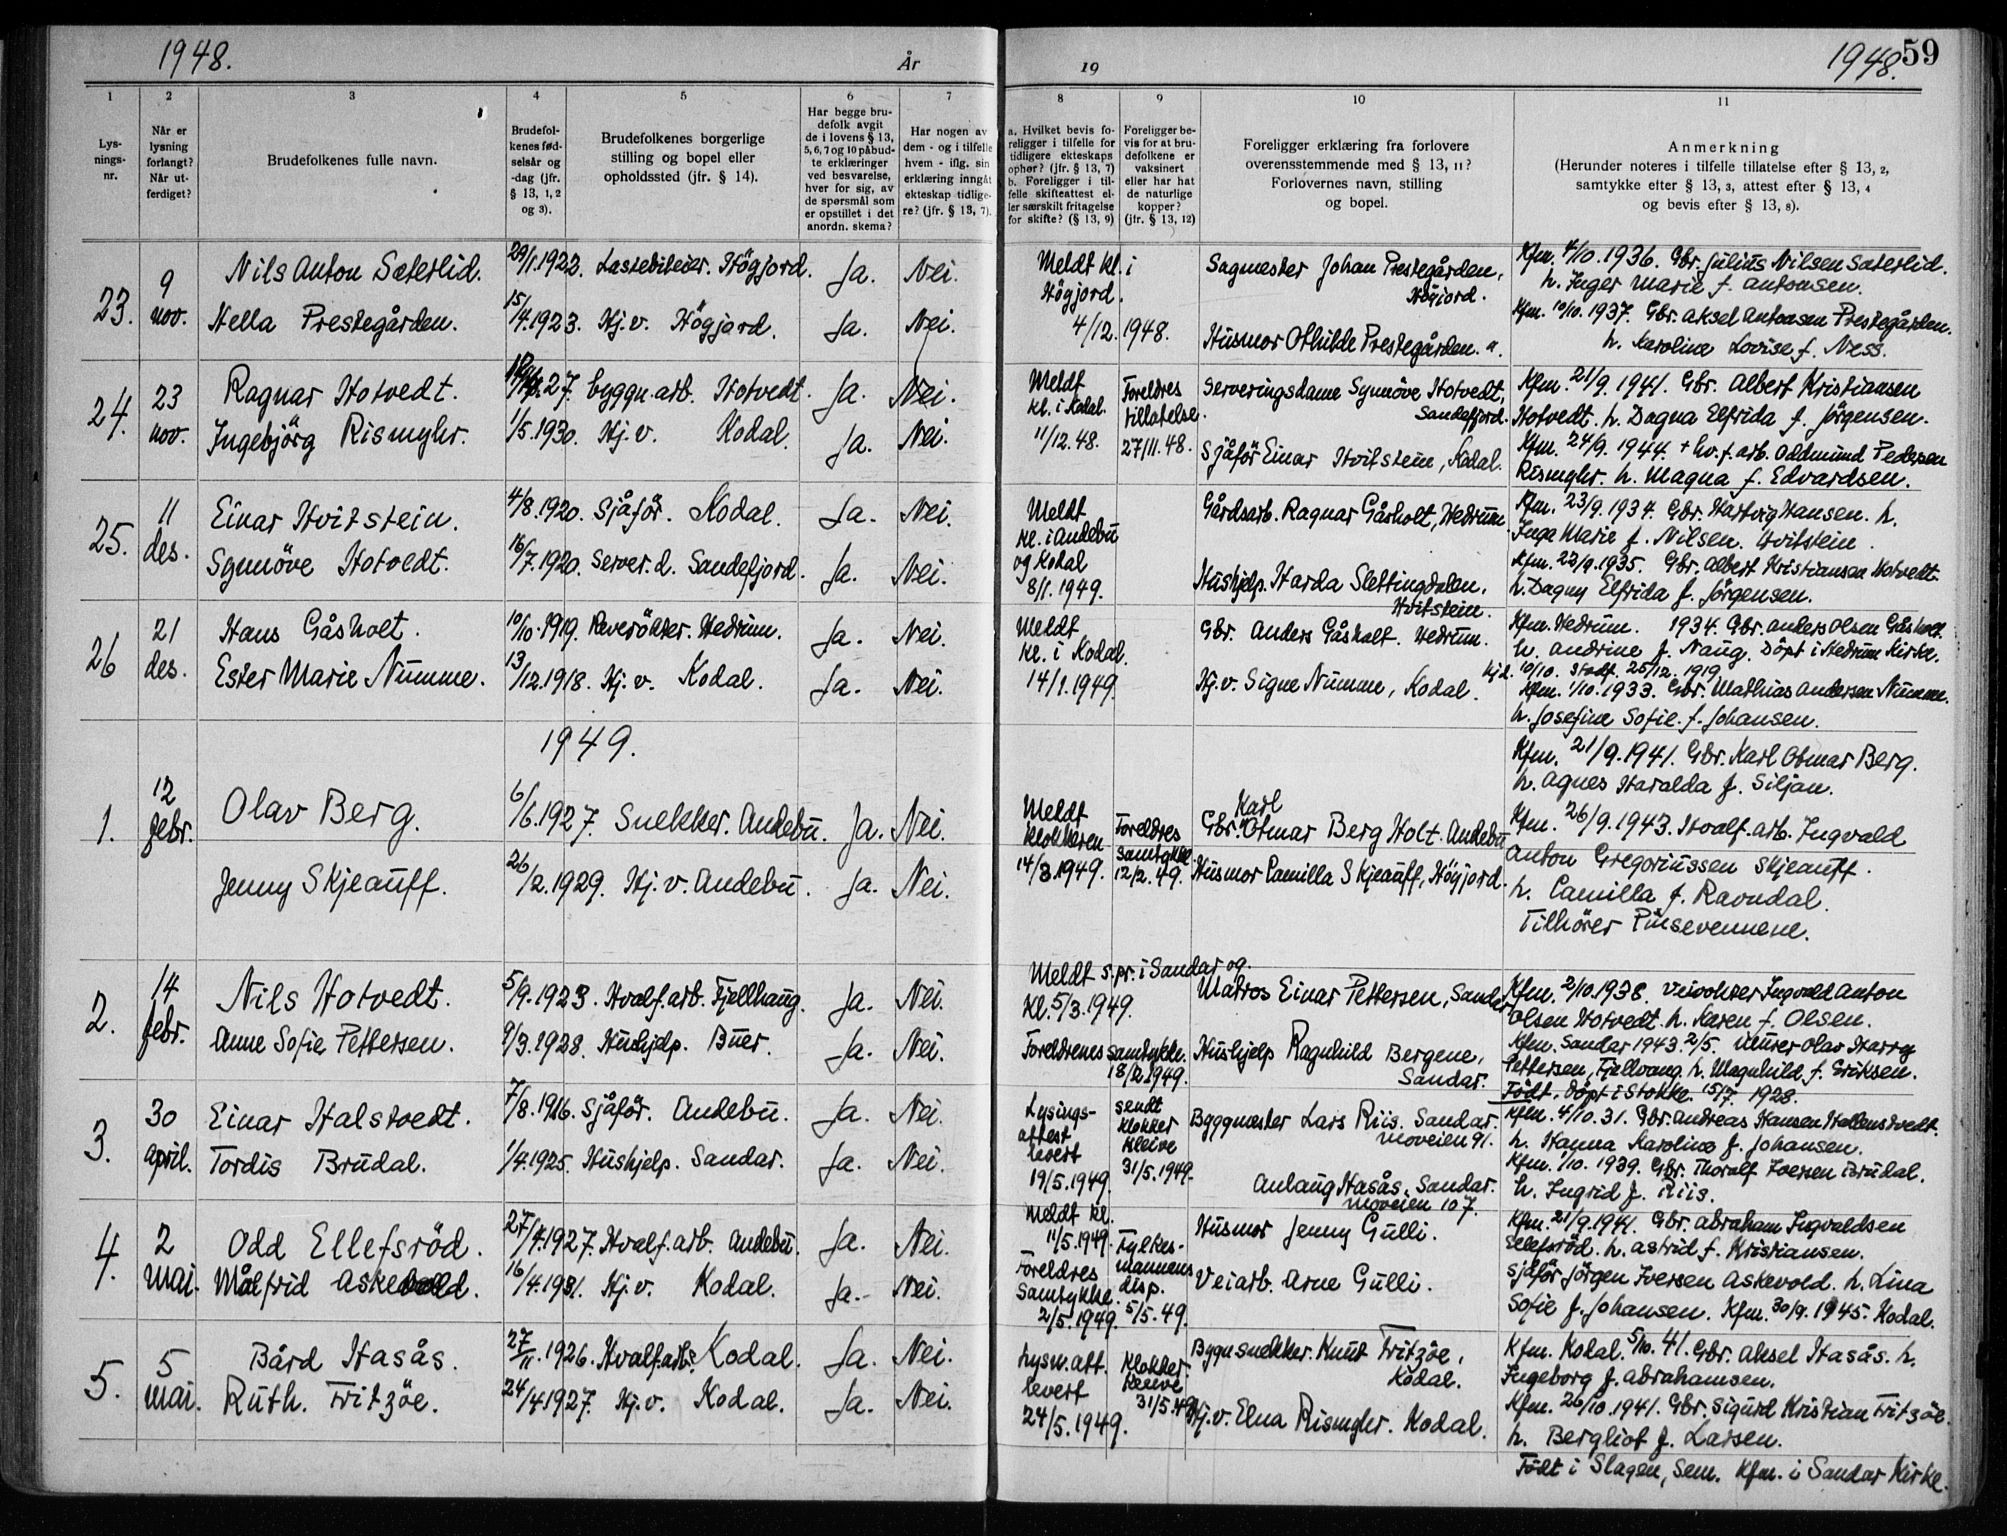 1948.
År
19
1948.
59
1 2 3 4 5 6 7 8 9 10 11
Lys-
nings-
nr.
Når er
lysning
forlangt?
Når ut-
ferdiget?
Brudefolkenes fulle navn.
Brudefol-
kenes fød-
selsår og
-dag (jfr.
§ 13, 1, 2
og 3).
Brudefolkenes borgerlige
stilling og bopel eller
opholdssted (jfr. § 14).
Har begge bru-
defolk avgit
de i lovens § 13,
5, 6, 7 og 10 påbud-
te erklæringer
ved besvarelse,
hver for sig, av
de spørsmål som
er opstillet i det
anordn. skema?
Har nogen av
dem - og i tilfelle
hvem - iflg. sin
erklæring inngåt
ekteskap tidlige-
re? (jfr. § 13, 7).
a. Hvilket bevis fo-
religger i tilfelle for
tidligere ekteskaps
ophør? (jfr. § 13, 7)
b. Foreligger i til-
felle skifteattest el-
ler særskilt fritagelse
for skifte? (§ 13, 9)
Foreligger be-
vis for at bru-
defolkene er
vaksinert
eller har hat
de naturlige
kopper?
(jfr. § 13, 12)
Foreligger erklæring fra forlovere
overensstemmende med § 13, 11?
Forlovernes navn, stilling
og bopel.
Anmerkning
(Herunder noteres i tilfelle tillatelse efter § 13, 2,
samtykke efter § 13, 3, attest efter § 13, 4
og bevis efter § 13, 8).
23.
9
nov.
Nils Anton Sæterlid.
29/1.1922. Lastebileier. Högjord.
Ja. Nei.
Hella Prestegården.
15/4.1923. Hj.v. Högjord.
Ja. Nei.
Meldt kl. i
Högjord.
4/12. 1948.
Sagmester Johan Prestegården,
Högjord.
Husmor Othilde Prestegården. "
Kfm. 4/10.1936. Gbr. Julius Nilsen Sæterlid.
h. Inger Marie f. Antonsen.
Kfm. 10/10. 1937. Gbr. Aksel Antonsen Prestegården.
h. Karoline Lovise f. Ness.
24.
23
nov.
Ragnar Hotvedt.
27. byggn.arb. Hotvedt.
Ja. Nei.
Ingebjörg Rismyhr.
1/5.1930. Hj.v. Kodal.
Ja. Nei.
Meldt
kl. i Kodal.
11/12.48.
Foreldres
tillatelse.
27/11.48.
Serveringsdame Synnöve Hotvedt,
Sandefjord.
Sjåför Einar Hvitstein, Kodal.
Kfm. 21/9.1941. Gbr. Albert Kristiansen
Hotvedt. h. Dagna Elfrida f. Jörgensen.
Kfm. 24/9.1944. + hv.f.arb. Oddmund Pedersen
Rismyhr. h. Magna f. Edvardsen.
25.
11
des.
Einar Hvitstein.
4/8.1920. Sjåför. Kodal.
Ja. Nei.
Synnöve Hotvedt.
16/7.1920. Server.d. Sandefjord.
Ja. Nei.
Meldt
kl. i Andebu
og Kodal
8/1.1949.
Gårdsarb. Ragnar Gåsholt, Hedrum.
Hushjelp. Harda Slettingdalen,
Hvitstein.
Kfm. 23/9.1934. Gbr. Hartvig Hansen. h.
Inga Marie f. Nilsen. Hvitstein.
Kfm. 22/9.1935. Gbr. Albert Kristiansen Hotvedt.
h. Dagny Elfrida f. Jörgensen.
26
21
des.
Hans Gåsholt.
10/10.1919. Reverökter. Hedrum.
Ja. Nei.
Ester Marie Numme.
13/12.1918. Hj.v. Kodal.
Ja. Nei.
Meldt
kl. i Kodal.
14/1.1949.
Gbr. Anders Gåsholt. Hedrum.
Hj.v. Signe Numme, Kodal.
Kfm. Hedrum. 1934. Gbr. Anders Olsen Gåsholt.
h. Andrine f. Naug. Döpt i Hedrum Kirke.
10/10. Stadf. 25/12.1919
Kfm. 1/10.1933. Gbr. Mathias Andersen Numme.
h. Josefine Sofie f. Johansen.
1949.
1.
12
febr.
Olav Berg.
6/6.1927. Snekker. Andebu.
Ja. Nei.
Jenny Skjeauff.
26/2.1929. Hj.v. Andebu.
Ja. Nei.
Meldt
klokkeren
14/3.1949.
Foreldres
samtykke
12/2.49.
Karl
Gbr. Otmar Berg Holt. Andebu
Husmor Camilla Skjeauff, Högjord.
Kfm. 21/9.1941. Gbr. Karl Otmar Berg.
h. Agnes Haralda f. Siljan.
Kfm. 26/9.1943. Hvalf.arb. Ingvald
Anton Gregoriussen Skjeauff.
h. Camilla f. Ravndal.
Tilhörer Pinsevennene.
2.
14
febr.
Nils Hotvedt.
5/9.1923. Hvalf.arb. Fjellhaug.
Ja. Nei.
Anne Sofie Pettersen.
9/3.1928. Hushjelp. Buer.
Ja. Nei.
Meldt s.pr. i Sandar og
kl. 5/3.1949.
Foreldrenes samtykke.
18/2.1949.
Matros Einar Pettersen, Sandar
Hushjelp Ragnhild Bergene,
Sandar.
Kfm. 2/10.1938. Veivokter Ingvald Anton
Olsen Hotvedt. h. Karen f. Olsen.
Kfm. Sandar 1943. 2/5. Murer Olav Harry
Pettersen, Fjellvang h. Magnhild f. Eriksen.
Födt. Döpt i Stokke. 15/7 1928.
3.
30
april.
Einar Halstvedt.
7/8.1916. Sjåför. Andebu.
Ja. Nei.
Tordis Brudal.
1/4.1925. Hushjelp. Sandar.
Ja. Nei.
Lysings-
attest
levert
19/5.1949.
sendt
klokker
Kleive
31/5.1949.
Byggmester Lars Riis. Sandar.
Moveien 91.
Anlaug Hasås. Sandar.
Moveien 107.
Kfm. 4/10.31. Gbr. Andreas Hansen Hallenstvedt.
h. Hanna Karoline f. Johansen.
Kfm. 1/10.1939. Gbr. Thoralf Iversen Brudal.
h. Ingrid f. Riis.
4.
2
mai.
Odd Ellefsröd.
27/4.1927. Hvalf.arb. Andebu.
Ja. Nei.
Målfrid Askevold.
16/4.1931. Hj.v. Kodal.
Ja.- Nei.
Meldt kl.
11/5.1949.
Foreldres
samtykke.
2/5.1949.
Fylkes-
mannens
disp.
5/5.49.
Husmor Jenny Gulli.
Veiarb. Arne Gulli.
Kfm. 21/9.1941. Gbr. Abraham Ingvaldsen
Ellefsröd. h. Astrid f. Kristiansen.
Sjåför Jörgen Iversen Askevold. h. Lina
Sofie f. Johansen. Kfm. 30/9. 1945. Kodal.
5.
5
mai.
Bård Hasås.
27/11.1926. Hvalf.arb. Kodal.
Ja. Nei.
Ruth. Fritzöe.
24/4.1927. Hj.v. Kodal.
Ja. Nei.
Lysn.att.
levert
24/5.1949.
Klokker
Kleive
31/5.49
Byggnsnekker. Knut Fritzöe,
Kodal.
Hj.v. Elna Rismyhr. Kodal.
Kfm. Kodal. 5/10.41. Gbr. Aksel Hasås. h.
Ingeborg f. Abrahamsen.
Kfm. 26/10.1941. Gbr. Sigurd Kristian Fritzöe.
h. Bergliot f. Larsen.
Födt i Slagen, Sem. Kfm. i Sandar Kirke.